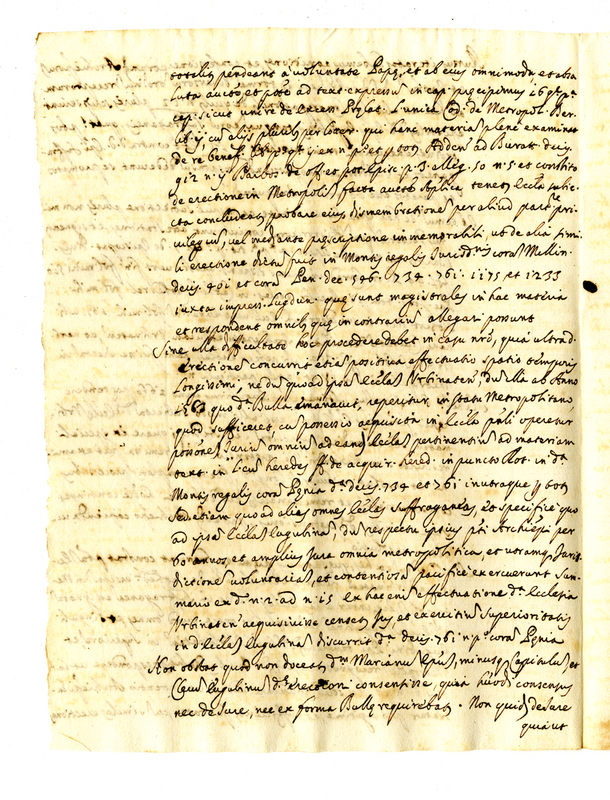 totaliter pendeant à voluntate Papę, et ab eius omnimoda, et abso
luta auctte et pote ad text. expressum in cap. pręcipimus 16 qt. pa
cap. sicut unire de excess. Pręlat. l. unica Cod. de Metropol. Ber
lib. ij cum aliis plurib. per Loter. qui hanc materiam plenè examinat
de re benef. ex no. po. et p tot. Adden. ad Burat. decis.
912 n. ij Barbos. de off. et pot. Episc. p. 3. alleg. 50 n. 5 et constito
de erectione in Metropolim facta auctte Aplica, tenetur Ecclia subie
cta concludenter probare eius dismembrationem per aliud parte pri
vilegium, vel mediante pręscriptione immemorabili, ut de alia simi
li erectione dictum fuit in Montis regalis Iurisdnis coram Mellin.
decis. 401 et coram Pen. dec. 546. 734. 761. 1175 et 1233
iuxta impress. Lugdun. quę sunt magistrales in hac materia
et respondent omnibus quę in contrarium allegari possunt
Sine ulla difficultate hoc procedere debet in casu nro, quia ultra d.
erectionem concurrit etiam positiva effectuatio spatio temporis
Longissimi, nedum quoad ipsam Eccliam Urbinaten, dum illa ab Anno
1563 quo da. Bulla emanavit, reperitur in statu Metropolitano
quod sufficeret, cum possessio acquisita in Ecclia pnli operetur
possonem Iurium omnium ad eandem Eccliam pertinentium ad materiam
text. in l. cum heredes ff. de acquir. hered. in puncto Rot. in da.
Montis regalis coram Pęnia da. decis. 734 et 761 in utraque p tot.
Sed etiam quoad alias omnes Ecclias suffraganeas, et specificè quo
ad ipsam Eccliam Eugubinam, dum respectu ipsius pti Archiepi per
60 annos, et amplius Iura omnia metropolitica, et utramque Iuris
dictionem voluntariam, et contentiosam pacificè exercuerunt Sum
mario ex do. n. 2. ad n. 15 ex hac enim effectuatione da. Ecclesia
Urbinaten acquisivisse censetur Ius, et exercitium superioritatis
in d. Eccliam Eugubinam discurrit da. decis. 761. n. po. coram Pęnia
Non obstat quod non doceatur dnm Marianum Epum, minusque Capitulum et
Clerum Eugubinum da. erectioni consensisse, quia huiusmodi consensus
nec de Iure, nec ex forma Bullę requirebatur. Non quidem de Iure
quia ut